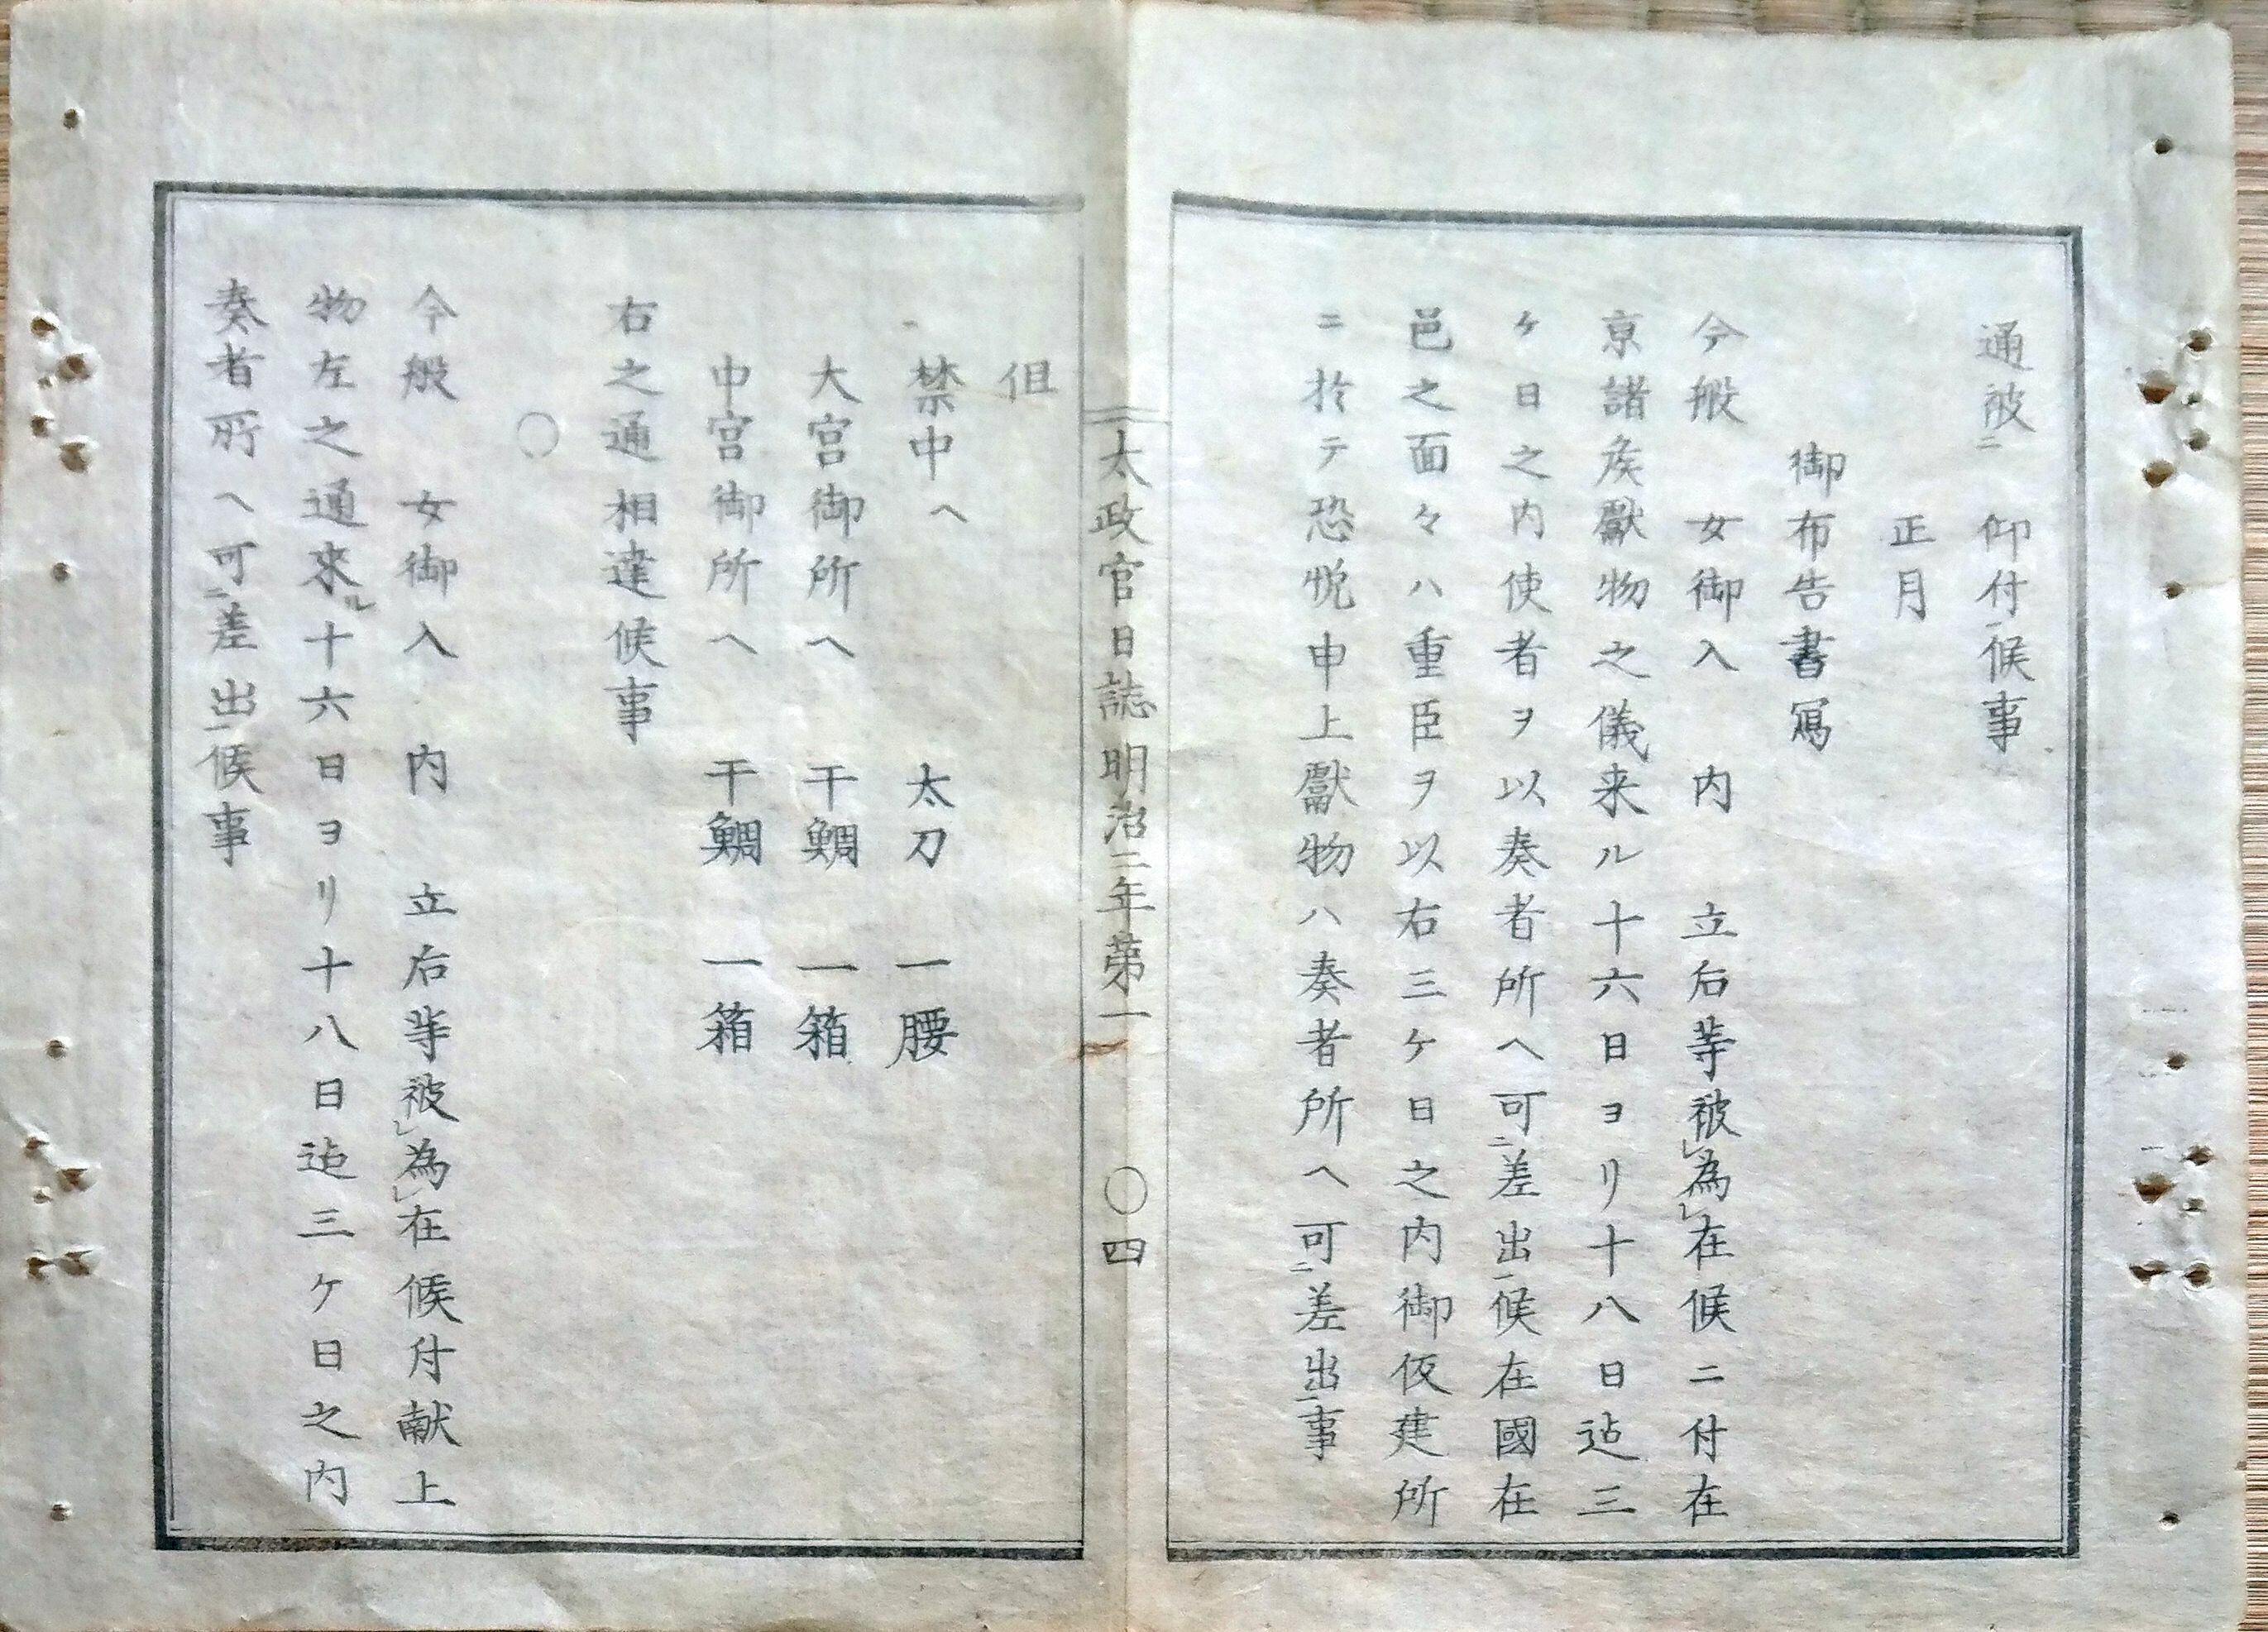 通被㆓ 仰付㆒候事
正月
御布告書寫
今般 女御入 内 立后等被㆑為㆑在候ニ付在
京諸矦獻物之儀来ル十六日ヨリ十八日迠三
ケ日之内使者ヲ以奏者所ヘ可㆓差出㆒候在國在
邑之面々ハ重臣ヲ以右三ケ日之内御仮建所
ニ於テ恐悦申上獻物ハ奏者所ヘ可㆓差出㆒事
太政官日誌明治二年第一 〇四
但
禁中ヘ 太刀 一腰
大宮御所ヘ 干鯛 一箱
中宮御所ヘ 干鯛 一箱
右之通相達候事
〇
今般 女御入 内 立后等被㆑為㆑在候付献上
物左之通來ル十六日ヨリ十八日迠三ケ日之内
奏者所ヘ可㆓差出㆒候事